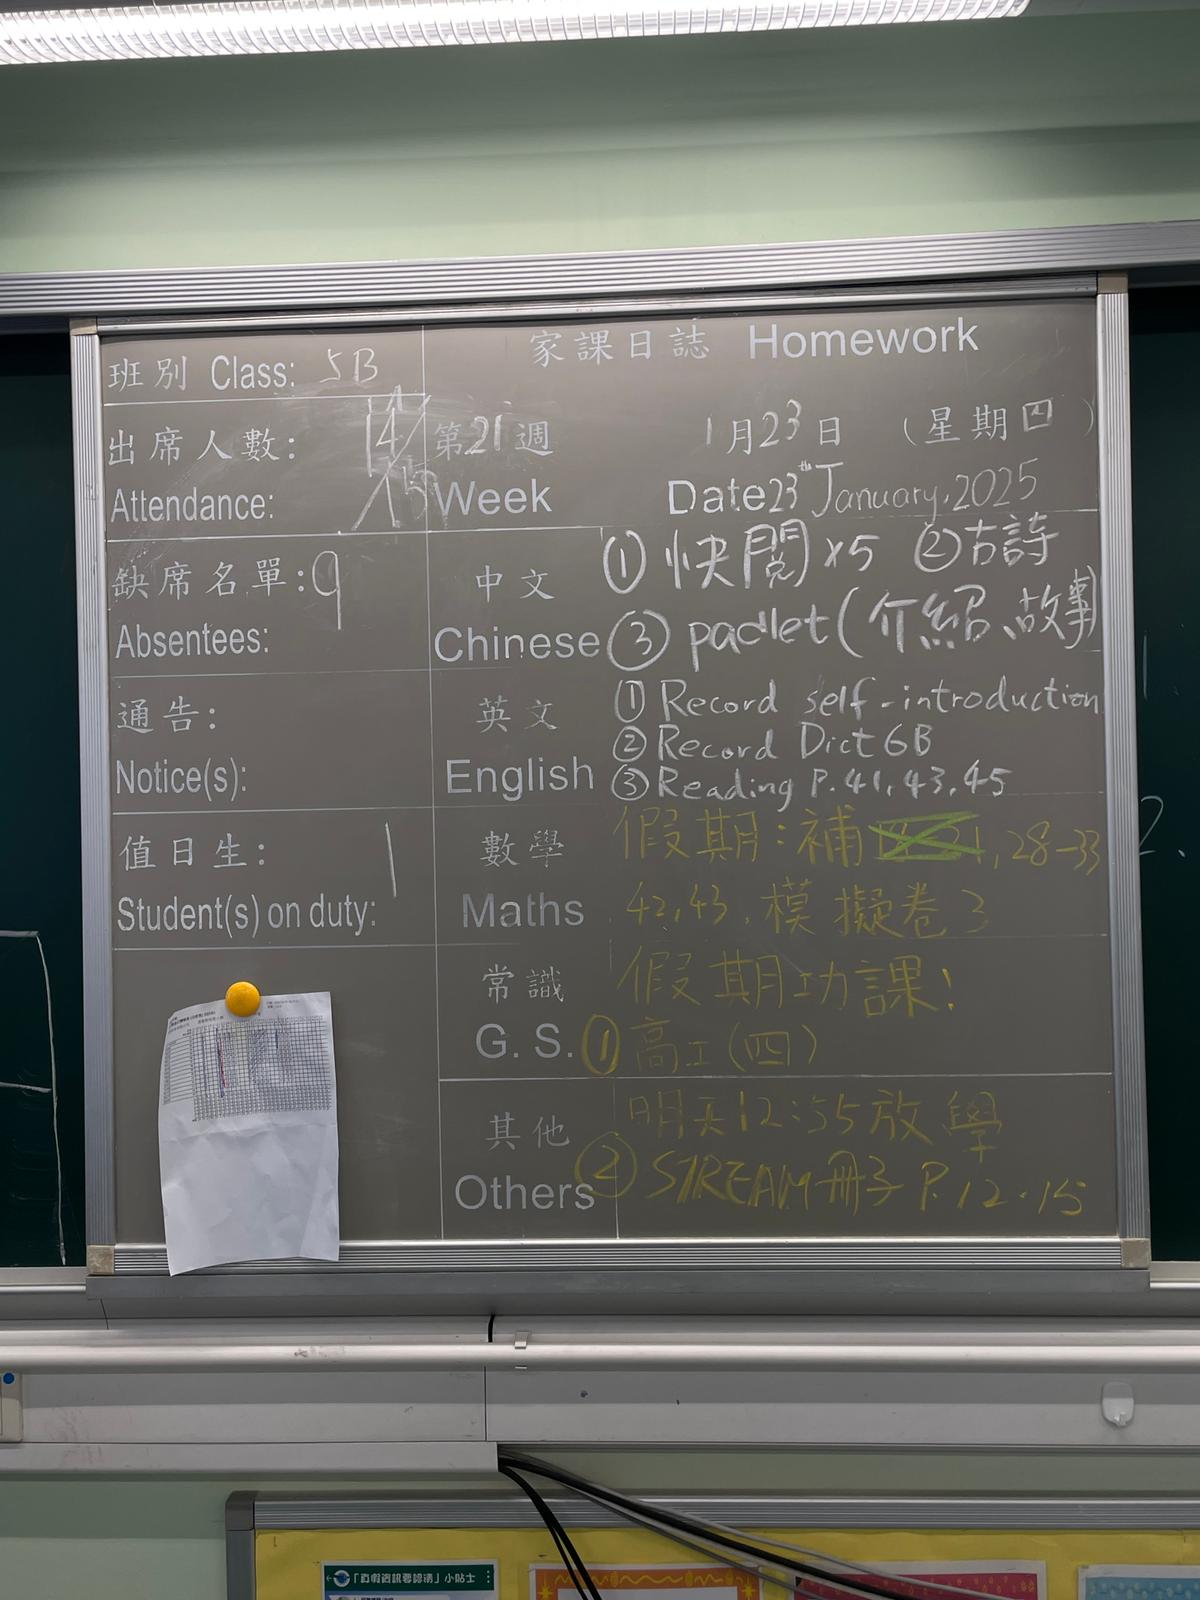 班別 Class: 5B
家課日誌 Homework
出席人數: 14/15
Attendance:
第21週
Week
1月23日 (星期四)
Date 23th January, 2025
缺席名單: 9
Absentees:
中文
Chinese
① 快閱x5 ②古詩
③ padlet(介紹、故事)
通告:
Notice(s):
英文
English
① Record self-introduction
② Record Dict 6B
③ Reading P.41, 43, 45
值日生: 1
Student(s) on duty:
數學
Maths
假期:補 21, 28-33
42, 43, 模擬卷3
常識
G. S.
假期功課!
① 高工(四)
其他
Others
明天12:55放學
② STREAM冊子 P.12-15
「真假資訊要認清」小貼士